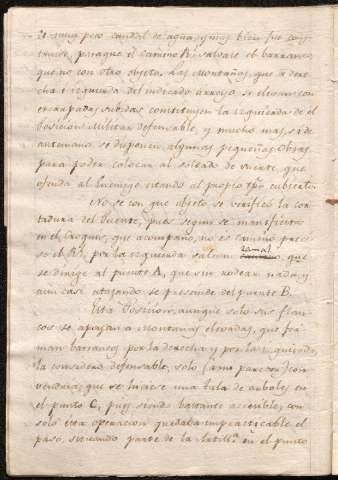 de muy poco caudal de aguas, y mas bien fue cons-
truido, paraque el camino Rl. salvase el barranco,
que no con otro objeto. Las montañas, que a dere-
cha é izquierda del indicado arroyo se elevan con
escarpadas subidas constituyen la izquierda de el
Posicion Militar defensable, y mucho mas, si de
antemano se disponen algunas pequeñas Obras
para poder colocar al soldado de suerte, que
ofenda al Enemigo estando al propio tpo. cubierto.
No se con que objeto se verificó la cor-
tadura del Puente, pues segun se manifiesta
en el Croquis, que acompaño, no es camino preci-
so el Rl. por la izquierda sale un ramal que
se dirige al puente A, que sin rodear nada y
aun casi atajando se prescinde del puente B.
Esta Posicion, aunque solo sus flan-
cos se apoyan a montañas elevadas, que for-
man barrancos por la derecha y por la izquierda,
la considero defensable, solo (a mi parecer) con-
vendria, que se hiciese una tala de arboles en
el punto C, pues siendo bastante accesible, con
solo esta operacion quedaba impracticable el
paso, situando parte de la Artilla. en el punto